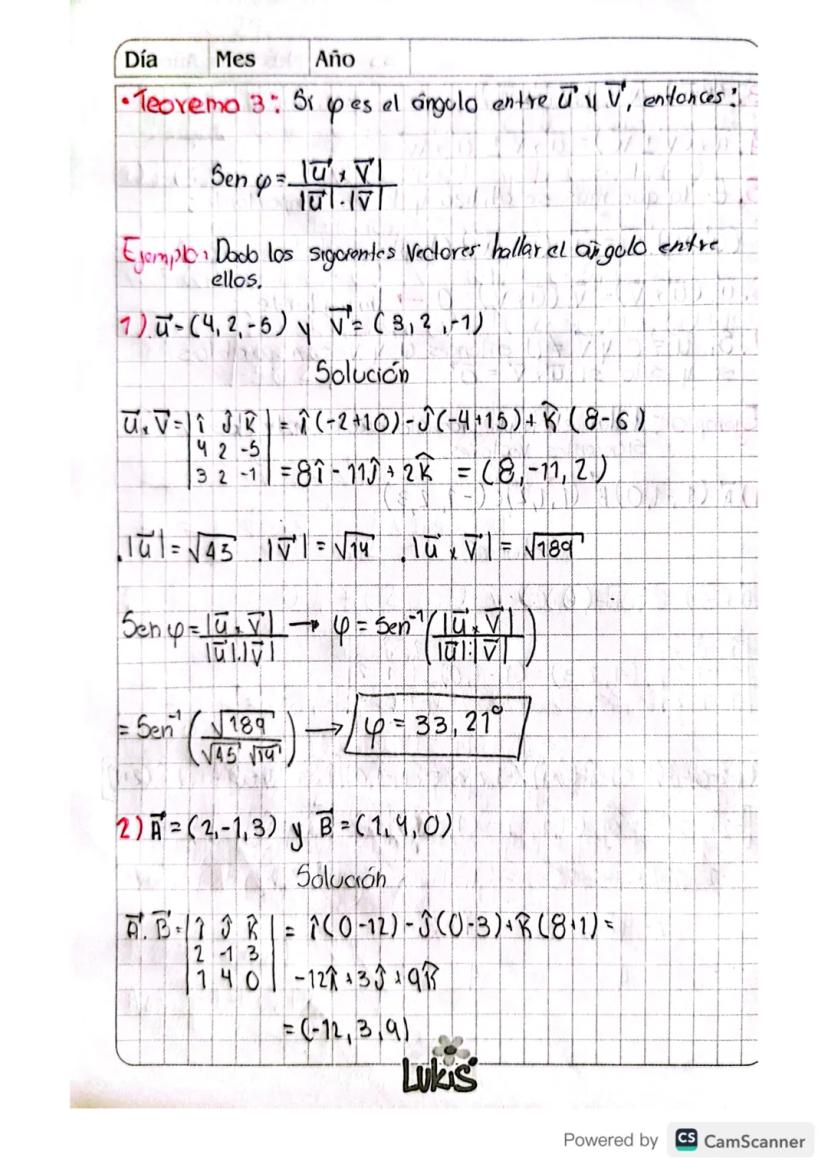 Día Mes Año
• Teorema 3: Si φ es el ángulo entre u⃗ y v⃗, entonces:
Sen φ = |u⃗ x v⃗| / |u⃗|.|v⃗|
Ejemplo: Dado los siguientes Vectores hallar el ángulo entre
ellos.
1) u⃗ = (4, 2, -5) y v⃗ = (3, 2, -1)
Solución
u⃗ x v⃗ = | î ĵ k̂ | = î (-2+10) - ĵ (-4+15) + k̂ (8-6)
4 2 -5
3 2 -1 = 8î - 11ĵ + 2k̂ = (8, -11, 2)
.|u⃗| = √45 .|v⃗| = √14 .|u⃗ x v⃗| = √189
Sen φ = |u⃗ x v⃗| / |u⃗|.|v⃗| → φ = Sen⁻¹ ( |u⃗ x v⃗| / |u⃗|.|v⃗| )
= Sen⁻¹ ( √189 / √45 √14 ) → φ = 33,21°
2) A⃗ = (2, -1, 3) y B⃗ = (1, 4, 0)
Solución
A⃗ . B⃗ = | î ĵ k̂ | = î (0-12) - ĵ (0-3) + k̂ (8+1) =
2 -1 3
1 4 0 -12î + 3ĵ + 9k̂
= (-12, 3, 9)
Lukis
Powered by CS CamScanner